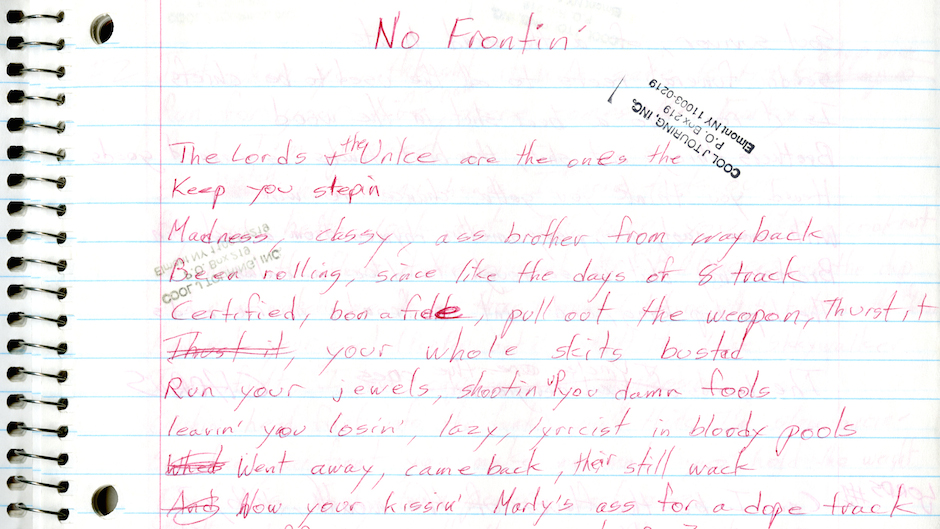 No Frontin'
COOL J TOURING, INC.
P.O. Box 219
Elmont NY 11003-0219
The Lords & the Unlce are the ones the
Keep you stepin
Madness, classy, ass brother from way back
Been rolling, since like the days of 8 track
Certified, bonafide, pull out the weopon, Thurst it
Thust it, your whole skits busted
Run your jewels, shootin up you damn fools
leavin' you losin', lazy, lyricist in bloody pools
Went away, came back, their still wack
And Now your kissin' Marly's ass for a dope track
Elmont NY 11003-0219
P.O. Box 219
COOL J TOURING, INC.